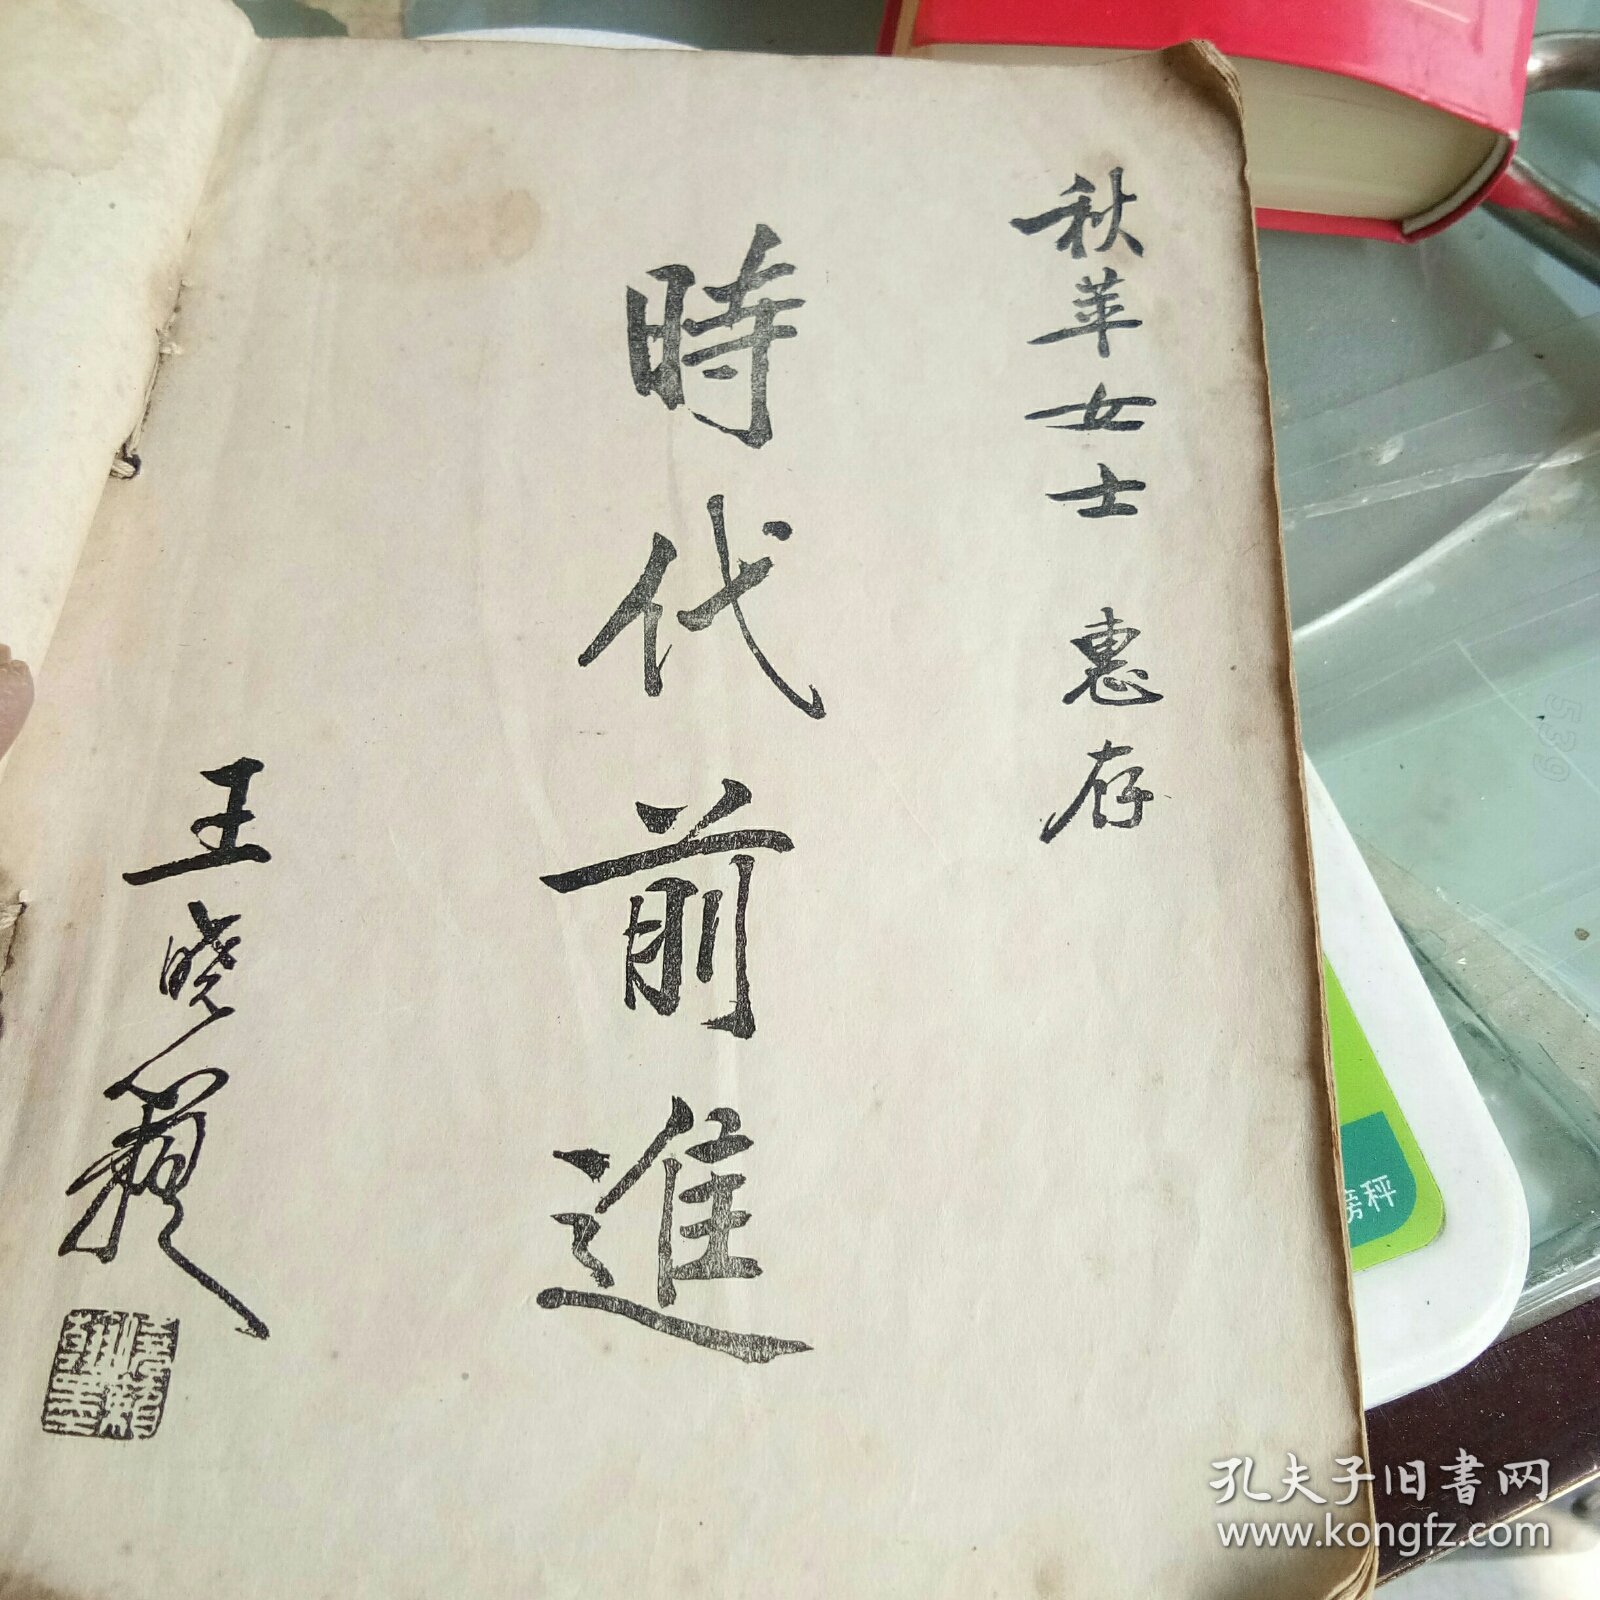 秋苹女士 惠存
時代前進
王晓籟
磅秤
539
孔夫子旧书网
www.kongfz.com